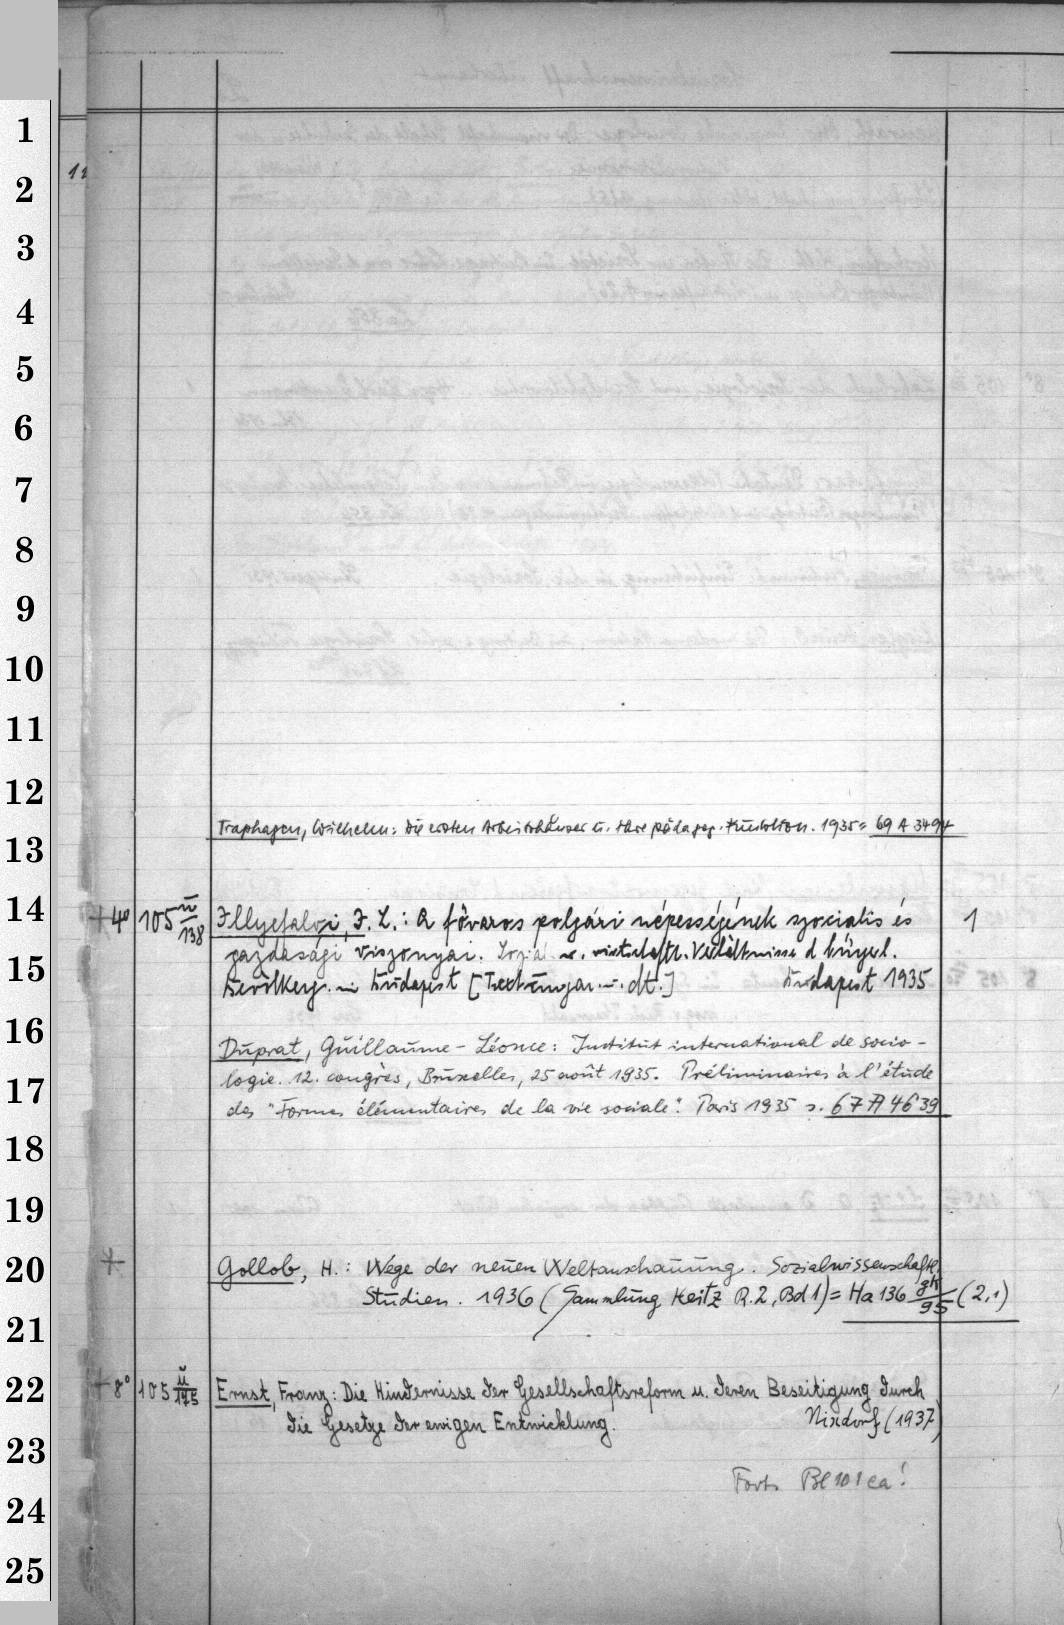 1
2
3
4
5
6
7
8
9
10
11
12
13
14
15
16
17
18
19
20
21
22
23
24
25
Traphagen, Wilhelm: Die ersten Arbeitshäuser u. ihre pädagog. Funktion. 1935 = 69 A 3494
+ 4° 105 ü/138 Illyefalvi, I. L.: A főváros polgári népességének szociális és 1
gazdasági viszonyai. Sozial. u. wirtschaftl. Verhältnisse d bürgerl.
Bevölkerg. in Budapest [Text ungar. u. dt.] Budapest 1935
Duprat, Guillaume-Léonce: Institut international de socio-
logie. 12. congrès, Bruxelles, 25 août 1935. Préliminaires à l'étude
des "Formes élémentaires de la vie sociale". Paris 1935 s. 67 A 4639
+ Gollob, H.: Wege der neuen Weltanschauung. Sozialwissenschaftl.
Studien. 1936 (Sammlung Keitz R.2, Bd 1) = Ha 136 gk/95 (2,1)
+ 8° 105 ü/175 Ernst, Franz: Die Hindernisse der Gesellschaftsreform u. deren Beseitigung durch
die Gesetze der ewigen Entwicklung. Nixdorf (1937)
Forts. Bl 101 ca!